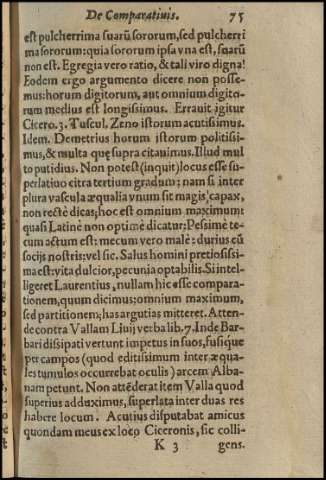 De Comparatiuis. 75
est pulcherrima suarũ sororum, sed pulcherri
ma sororum: quia sororum ipsa vna est, suarũ
non est. Egregia vero ratio, & tali viro digna!
Eodem ergo argumento dicere non posse-
mus: horum digitorum, aut omnium digito-
rum medius est longissimus. Errauit igitur
Cicero. 3. Tuscul. Zeno istorum acutissimus.
Idem. Demetrius horum istorum politissi-
mus, & multa quę supra citauimus. Illud mul
to putidius. Non potest (inquit) locus esse su-
perlatiuo citra tertium gradum: nam si inter
plura vascula æqualia vnum sit magis capax,
non rectè dicas; hoc est omnium maximum:
quasi Latinè non optimè dicatur; Pessimè te-
cum actum est: mecum vero malè: durius cũ
socijs nostris: vel sic. Salus homini pretiosissi-
ma est: vita dulcior, pecunia optabilis. Si intel-
ligeret Laurentius, nullam hic esse compara-
tionem, quum dicimus; omnium maximum,
sed partitionem; has argutias mitteret. Atten-
de contra Vallam Liuij verba lib. 7. Inde Bar-
bari dissipati vertunt impetus in suos, fusique
per campos (quod editissimum inter æqua-
les tumulos occurrebat oculis) arcem Alba-
nam petunt. Non attẽderat item Valla quod
superius adduximus, superlata inter duas res
habere locum. Acutius disputabat amicus
quondam meus ex loco Ciceronis, sic colli-
K 3 gens.